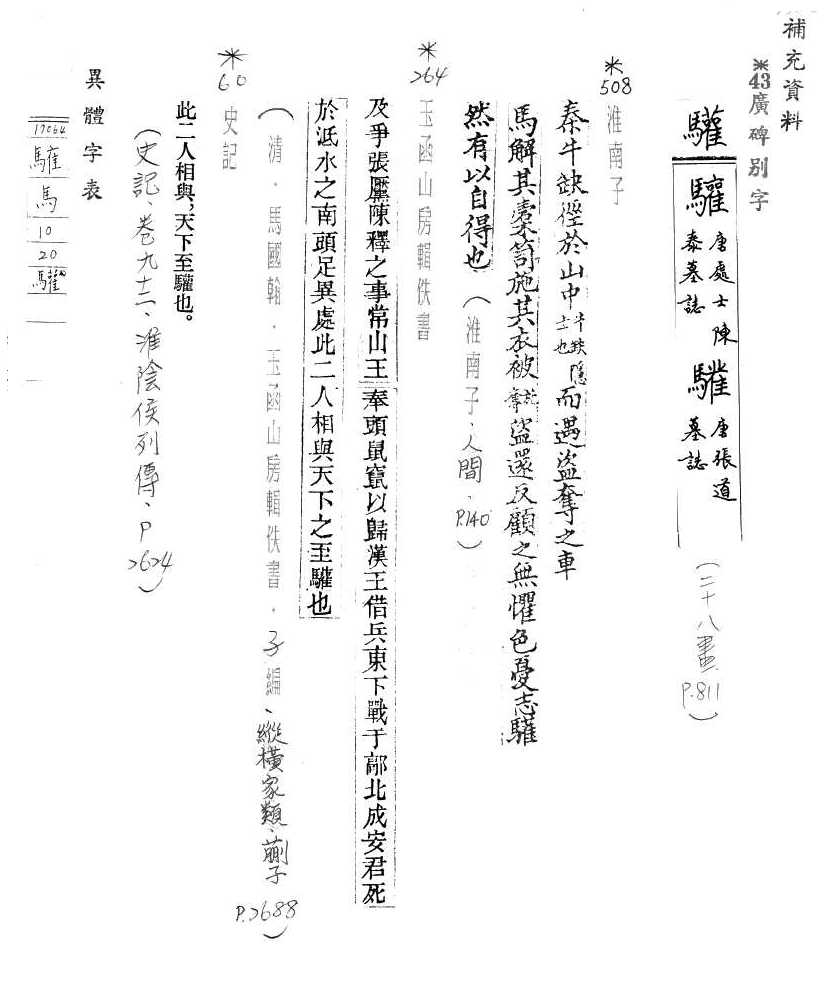 補充資料
*43廣碑別字
驩
驩 唐處士陳泰墓誌
驩 唐張道墓誌
(二十八畫 P.811)
*508
淮南子
秦牛缺徑於山中牛缺隱士也而遇盜奪之車
馬解其橐笥施其衣被盜還反顧之無懼色憂志驩
然有以自得也
(淮南子.人間.P.140)
*264
玉函山房輯佚書
及爭張黶陳釋之事常山王奉頭鼠竄以歸漢王借兵東下戰于鄗北成安君死
於泜水之南頭足異處此二人相與天下之至驩也
(清.馬國翰.玉函山房輯佚書.子編、縱橫家類、蒯子 P.2688)
*60
史記
此二人相與，天下至驩也。
(史記、卷九十二、淮陰侯列傳、P2624)
異體字表
17064
驩
馬
10
20
驩